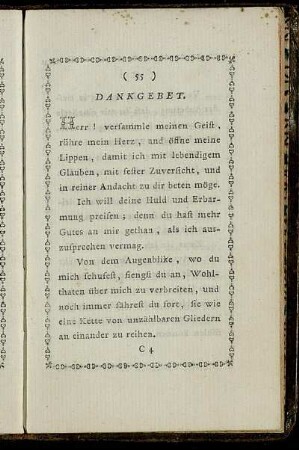 ( 55 )
DANKGEBET.
Herr! versammle meinen Geist,
rühre mein Herz, and öffne meine
Lippen, damit ich mit lebendigem
Glauben, mit fester Zuversicht, und
in reiner Andacht zu dir beten möge.
Ich will deine Huld und Erbar-
mung preisen; denn du hast mehr
Gutes an mir gethan, als ich aus-
zusprechen vermag.
Von dem Augenblike, wo du
mich schufest, fiengst du an, Wohl-
thaten über mich zu verbreiten, und
noch immer fährest du fort, sie wie
eine Kette von unzählbaren Gliedern
an einander zu reihen.
C 4